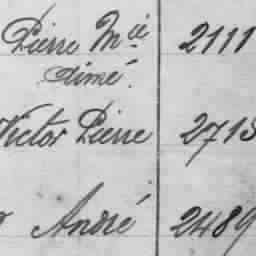 Pierre Mcié 2111
Aimé.
Victor Pierre 2713
André 2489